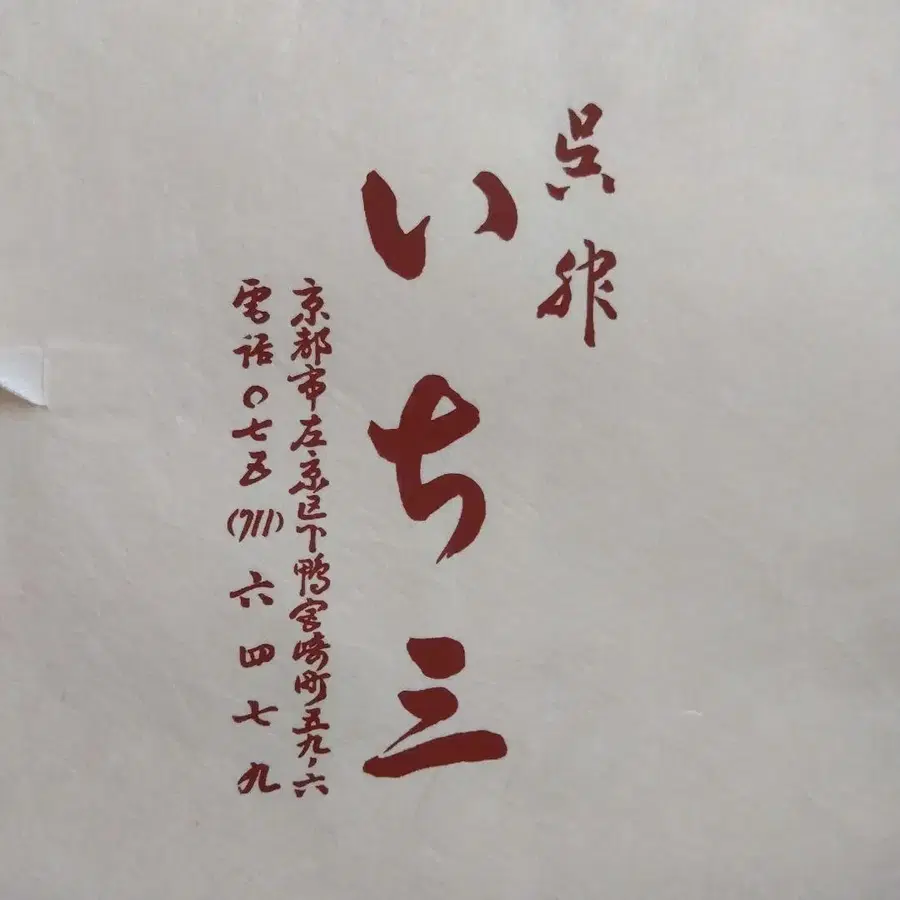 呉服
いち三
京都市左京区下鴨宮崎町五九ノ六
電話〇七五(711)六四七九